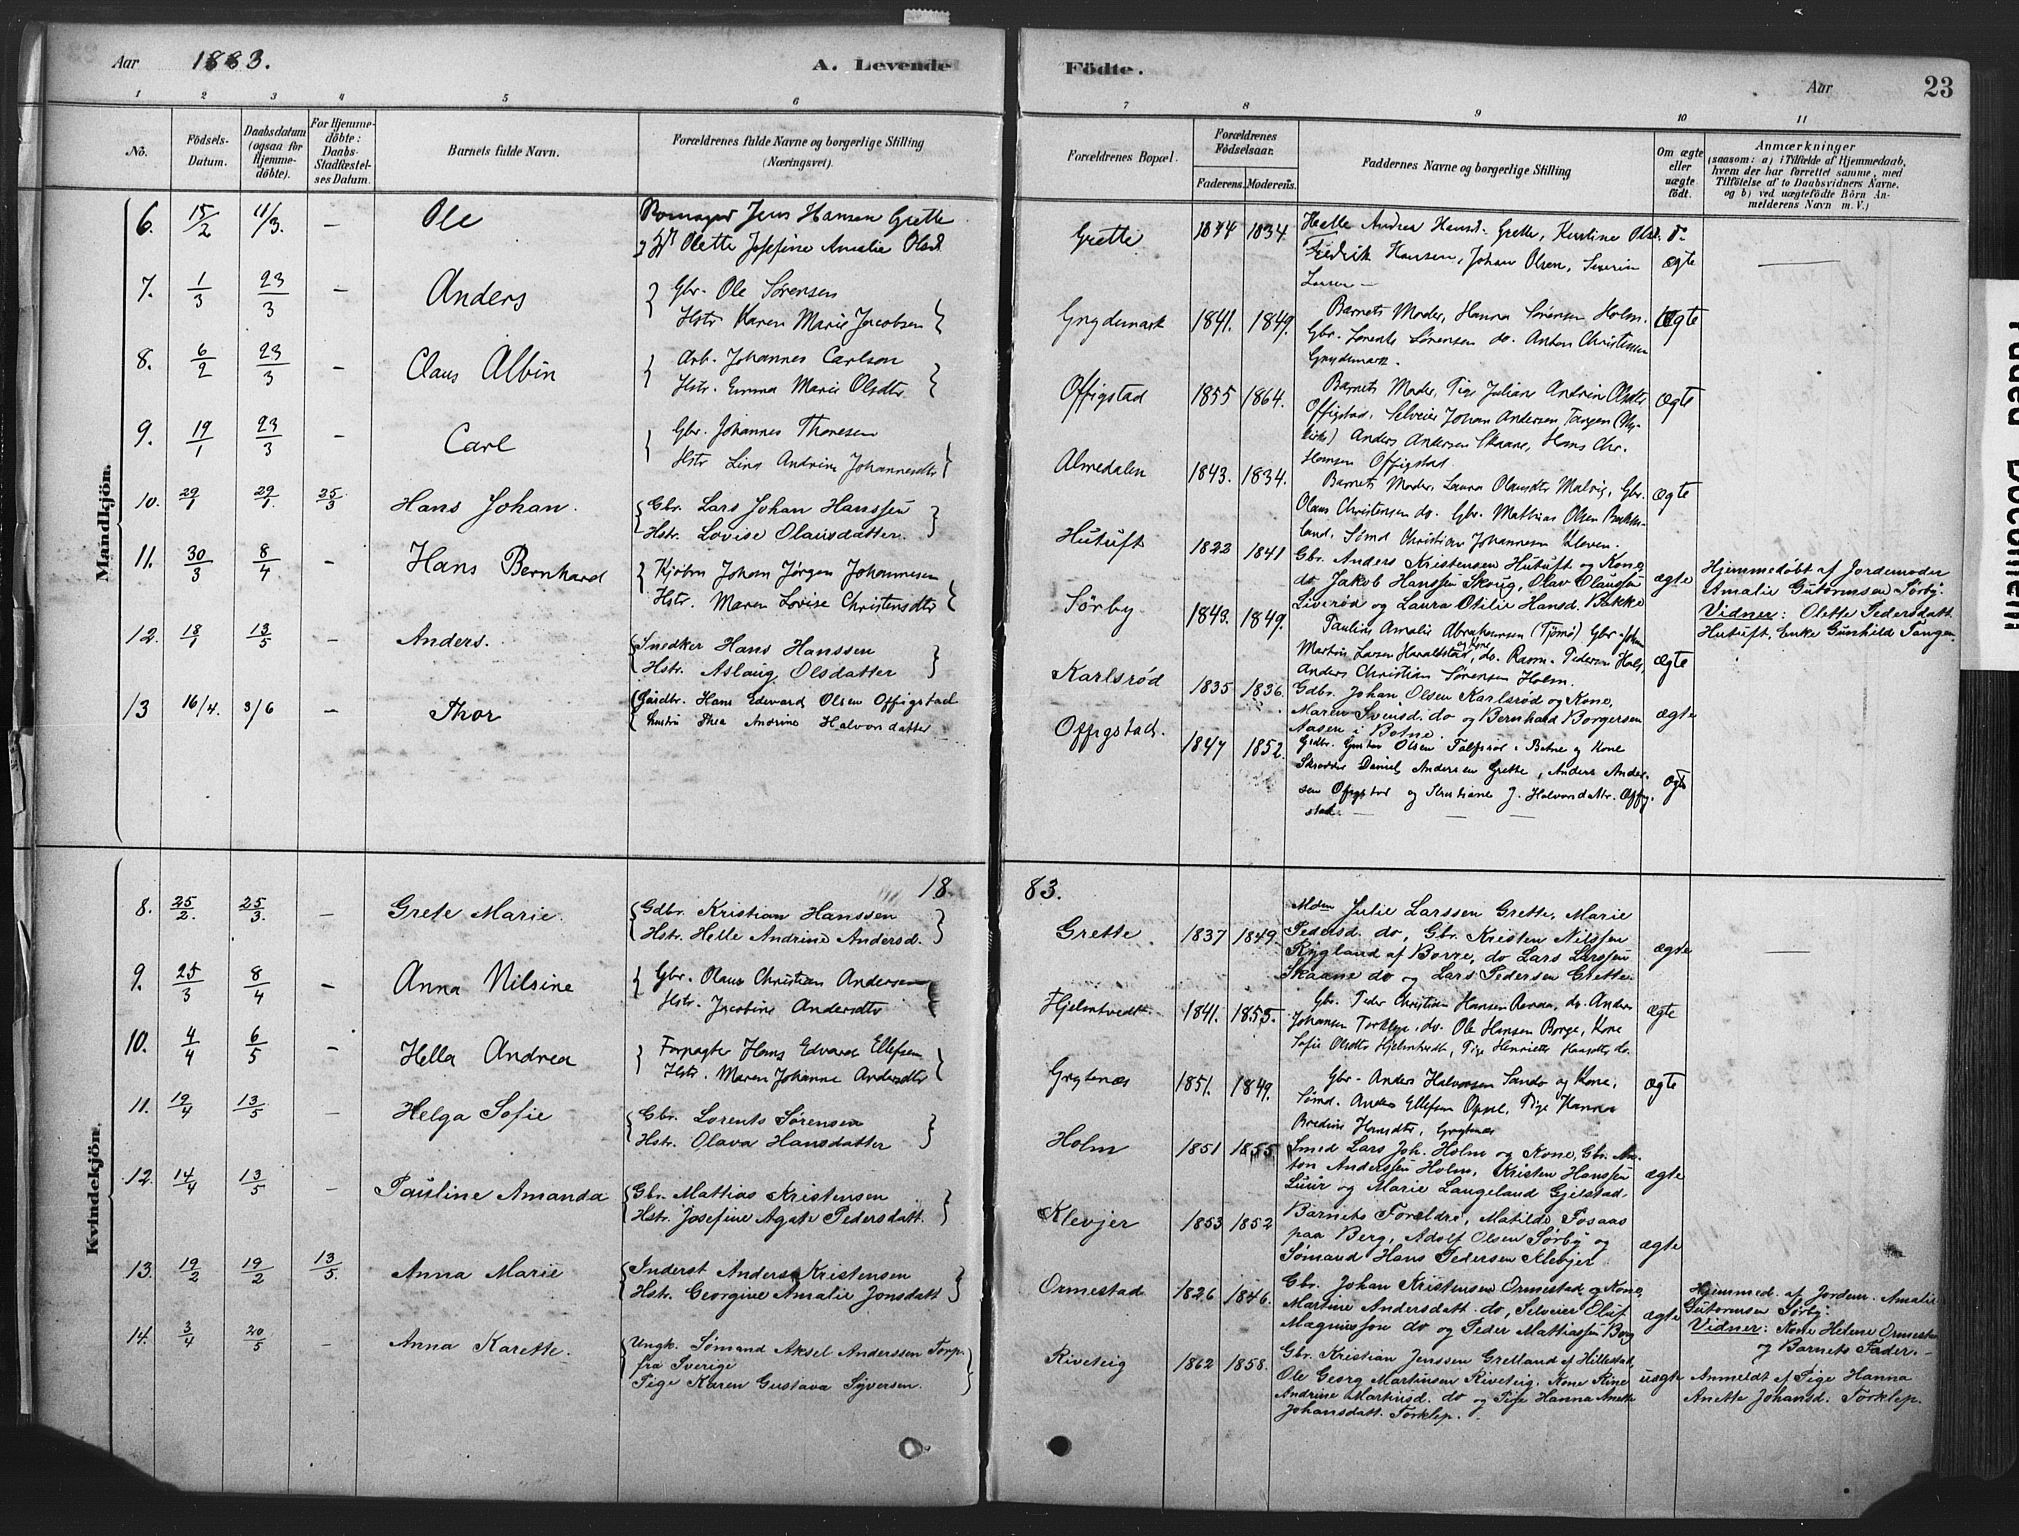 Aar 1883. A. Levende Födte. Aar 23
1 2 3 4 5 6 7 8 9 10 11
No. Födsels-Datum. Daabsdatum (ogsaa for Hjemme-döbte). For Hjemme-döbte: Daabs-Stadfæstel-ses Datum. Barnets fulde Navn. Forældrenes fulde Navne og borgerlige Stilling (Næringsvei). Forældrenes Bopæl. Forældrenes Födselsaar. Faderens. Moderens. Faddernes Navne og borgerlige Stilling Om ægte eller uægte födt. Anmærkninger (saasom: a) i Tilfælde af Hjemmedaab, hvem der har forrettet samme, med Tilföielse af to Daabsvidners Navne, og b) ved uægtefödte Börn An-melderens Navn m. V.)
Mandkjön.
6. 15/2 11/3. – Ole
Jens Hansen Grette
Olette Josefine Amalie Olsd.
Grette 1834.
Helle Andrea Hansd. Grette, Kirstine Olsd. do
Fredrik Hansen, Johan Olsen, Severin
Larsen –
ægte
7. 1/3 23/3 – Anders
Gbr. Ole Sørensen
Hstr. Karen Marie Jacobsen
Grydemark 1841. 1849.
Barnets Moder, Hanna Sørensen Holm.
Gbr. Lorents Sørensen do. Anton Christensen
Grydemark.
Ægte
8. 6/2 23/3 – Claus Albin
Arb. Johannes Carlson
Hstr. Emma Marie Olsdtr
Offigstad 1855 1864.
Barnets Moder, Pige Juliane Andrine Olsdtr
Offigstad, Selveier Johan Andersen Tangen
Anders Andersen Skaane, Hans Chr.
Hansen Offigstad
Ægte
9. 19/1 23/3 – Carl
Gbr. Johannes Thoresen
Hstr Lina Andrine Johannesdtr
Almedalen 1843. 1834.
Barnets Moder, Laura Olausdtr Malvig, Gbr.
Olaus Christensen do. Gbr. Mathias Olsen Bakke-
land, Sømd Christian Johannesen Kleven.
Ægte
10. 29/1 29/1. 25/3 Hans Johan.
Gbr. Lars Johan Hanssen
Hstr. Lovise Olausdatter
Hutuft 1822 1841
Gbr. Anders Kristensen Hutuft og Kone,
do Jakob Hanssen Skoug, Olav Olaussen
Liverød og Laura Otilie Hansd. Bakke
ægte
Hjemmedøbt af Jordemoder
Amalie Gutormsen Sørby.
Vidner: Olette Pedersdatt.
Hutuft, Enke Gunhild Tangen
11. 30/3 8/4 – Hans Bernhard
Johan Jørgen Johannesen
Hstr. Maren Lovise Christensdtr
Sörby 1843. 1849.
Pauline Amalie Abrahamsen (Tjømø) Gbr. Johan
Martin Larsen Haraldstad og Kone, do. Rasm. Pedersen Holt,
Anders Christian Sørensen Holm.
Ægte
12. 18/1 13/5 – Anders.
Snedker Hans Hanssen
Hstr. Aslaug Olsdatter
Karlsrød 1835 1836.
Gdbr. Johan Olsen Karlsrød og Kone,
Maren Svensd. do og Bernhard Borgersen
Aasen i Botne
ægte
13 16/4. 3/6 – Thor
Gaardbr. Hans Edevard Olsen Offigstad
Hustru Thea Andrine Halvorsdatter
Offigstad. 1847 1852.
Grdbr. Gustav Olsen i Botne og Kone
Skrædder Daniel Andersen Grette, Anders Ander-
sen Offigstad og J. Halvorsdatr. Offig-
stad. – – –
Ægte
1883.
Kvindekjön.
8. 25/2. 25/3. – Grete Marie.
Gdbr. Kristian Hanssen
Hstr. Helle Andrine Andersd.
Grette 1837 1849.
Julie Larssen Grette, Marie
Pedersd. do, Gbr. Kristen Nilssen
Rygland af Borre, do Lars Larssen
Skaane do og Lars Pedersen Grette.
ægte
9. 25/3 8/4 – Anna Nilsine
Gbr. Olaus Christian Andersen
Hstr. Jacobine Andersdtr
Hjelmtvedt 1841. 1853.
Gbr. Peder Christian Hansen, do. Anders
Johansen Torklep, do. Ole Hansen Borge, Kone
Sofie Olsdtr Hjelmtvedt, Pige Henriette Hansdtr do.
Ægte
10. 4/4 6/5 – Hella Andrea
Forpagter Hans Edvard Ellefsen
Hstr. Maren Johanne Andersdtr
Grytenæs 1851. 1849.
Gbr. Anders Halvorsen Sando og Kone,
Sømd. Anders Ellefsen Oppe, Pige Hanna
Bredine Hansdtr, Grytenæs
ægte
11. 19/4 13/5 – Helga Sofie
Gbr. Lorents Sørensen
Hstr. Olava Hansdatter
Holm 1851 1855
Smed Lars Joh. Holm og Kone, Gbr. An-
ton Anderssen Holm, Kristen Hanssen
Luur og Marie Langeland Gjelstad.
ægte
12. 14/4 13/5 – Pauline Amanda
Gbr. Mattias Kristensen
Hstr. Josefine Agate Pedersdatt.
Klevjer 1853 1852
Barnets Forældre, Matilde Fosaas
paa Berg, Adolf Olsen Sørby og
Sømand Hans Pedersen Klebjer
ægte
13. 19/2 19/2 13/5. Anna Marie
Inderst Anders Kristensen
Hstr. Georgine Amalie Jonsdatt.
Ormestad 1826 1846.
Gbr. Johan Kristensen Ormestad og Kone,
Martine Andersdatt. do, Selveier Oluf
Magnussen do og Peder Mattiassen Borg
ægte
Hjemmed. af Jordem. Amalie
Gutormsen Sørby.
Vidner: Kone Helene Ormestad
og Barnets Fader. –
14. 3/4 20/5 – Anna Karette.
Ungk. Sømand Aksel Anderssen Torp
fra Sverige
Pige Karen Gustava Syversen.
Riveteig 1862 1858.
Gbr. Kristian Jenssen Gretland af Hillestad,
Ole Georg Martinsen Riveteig. Kone Kine
Andrine Martinsd. do og Pige Hanna Anette
Johansdatt. Torklep.
uægte
Anmeldt af Pige Hanna
Anette Johansd. Torklep.